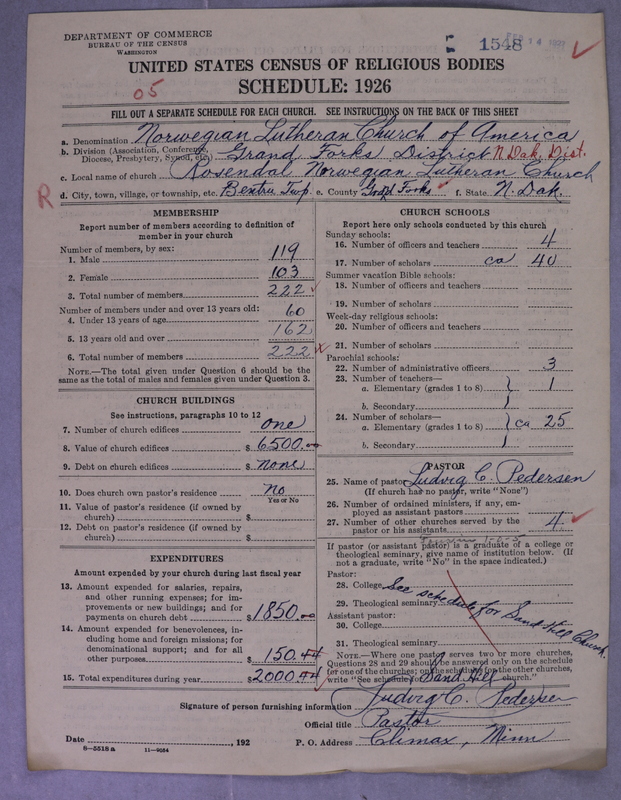 DEPARTMENT OF COMMERCE
BUREAU OF THE CENSUS
WASHINGTON
1548
UNITED STATES CENSUS OF RELIGIOUS BODIES
SCHEDULE: 1926
05
FILL OUT A SEPARATE SCHEDULE FOR EACH CHURCH. SEE INSTRUCTIONS ON THE BACK OF THIS SHEET
a. Denomination Norwegian Lutheran Church of America
b. Division (Association, Conference, Diocese, Presbytery, Synod, etc.) Grand Forks District N. Dak. Dist.
c. Local name of church Rosendal Norwegian Lutheran Church
R d. City, town, village, or township, etc. Bentru Twp. e. County Grand Forks f. State N. Dak.
MEMBERSHIP
Report number of members according to definition of
member in your church
Number of members, by sex:
1. Male 119
2. Female 103
3. Total number of members 222
Number of members under and over 13 years old:
4. Under 13 years of age 60
5. 13 years old and over 162
6. Total number of members 222
NOTE.—The total given under Question 6 should be
same as the total of males and females given under Question 3.
CHURCH BUILDINGS
See instructions, paragraphs 10 to 12
7. Number of church edifices one
8. Value of church edifices $ 6500.00
9. Debt on church edifices $ none
10. Does church own pastor's residence no
Yes or No
11. Value of pastor's residence (if owned by
church) $
12. Debt on pastor's residence (if owned by
church) $
EXPENDITURES
Amount expended by your church during last fiscal year
13. Amount expended for salaries, repairs,
and other running expenses; for im-
provements or new buildings; and for
payments on church debt $ 1850.00
14. Amount expended for benevolences, in-
cluding home and foreign missions; for
denominational support; and for all
other purposes 150.44
15. Total expenditures during year $ 2000.44
CHURCH SCHOOLS
Report here only schools conducted by this church
Sunday schools:
16. Number of officers and teachers 4
17. Number of scholars ca 40
Summer vacation Bible schools:
18. Number of officers and teachers
19. Number of scholars
Week-day religious schools:
20. Number of officers and teachers
21. Number of scholars
Parochial schools:
22. Number of administrative officers 3
23. Number of teachers—
a. Elementary (grades 1 to 8) 1
b. Secondary
24. Number of scholars—
a. Elementary (grades 1 to 8) ca 25
b. Secondary
PASTOR
25. Name of pastor Ludvig C. Pedersen
(If church has no pastor, write "None")
26. Number of ordained ministers, if any, em-
ployed as assistant pastors
27. Number of other churches served by the
pastor or his assistants 4
If pastor (or assistant pastor) is a graduate of a college or
theological seminary, give name of institution below. (If
not a graduate, write "No" in the space indicated.)
Pastor:
28. College See schedule for Sand Hill Church.
29. Theological seminary
Assistant pastor:
30. College
31. Theological seminary
NOTE.—Where one pastor serves two or more churches,
Questions 28 and 29 should be answered only on the schedule
for one of the churches; on the schedule for the other churches,
write "See schedule for Sand Hill church."
Signature of person furnishing information Ludvig C. Pedersen
Official title Pastor
Date , 192 P. O. Address Climax, Minn
8—5518a 11—9684